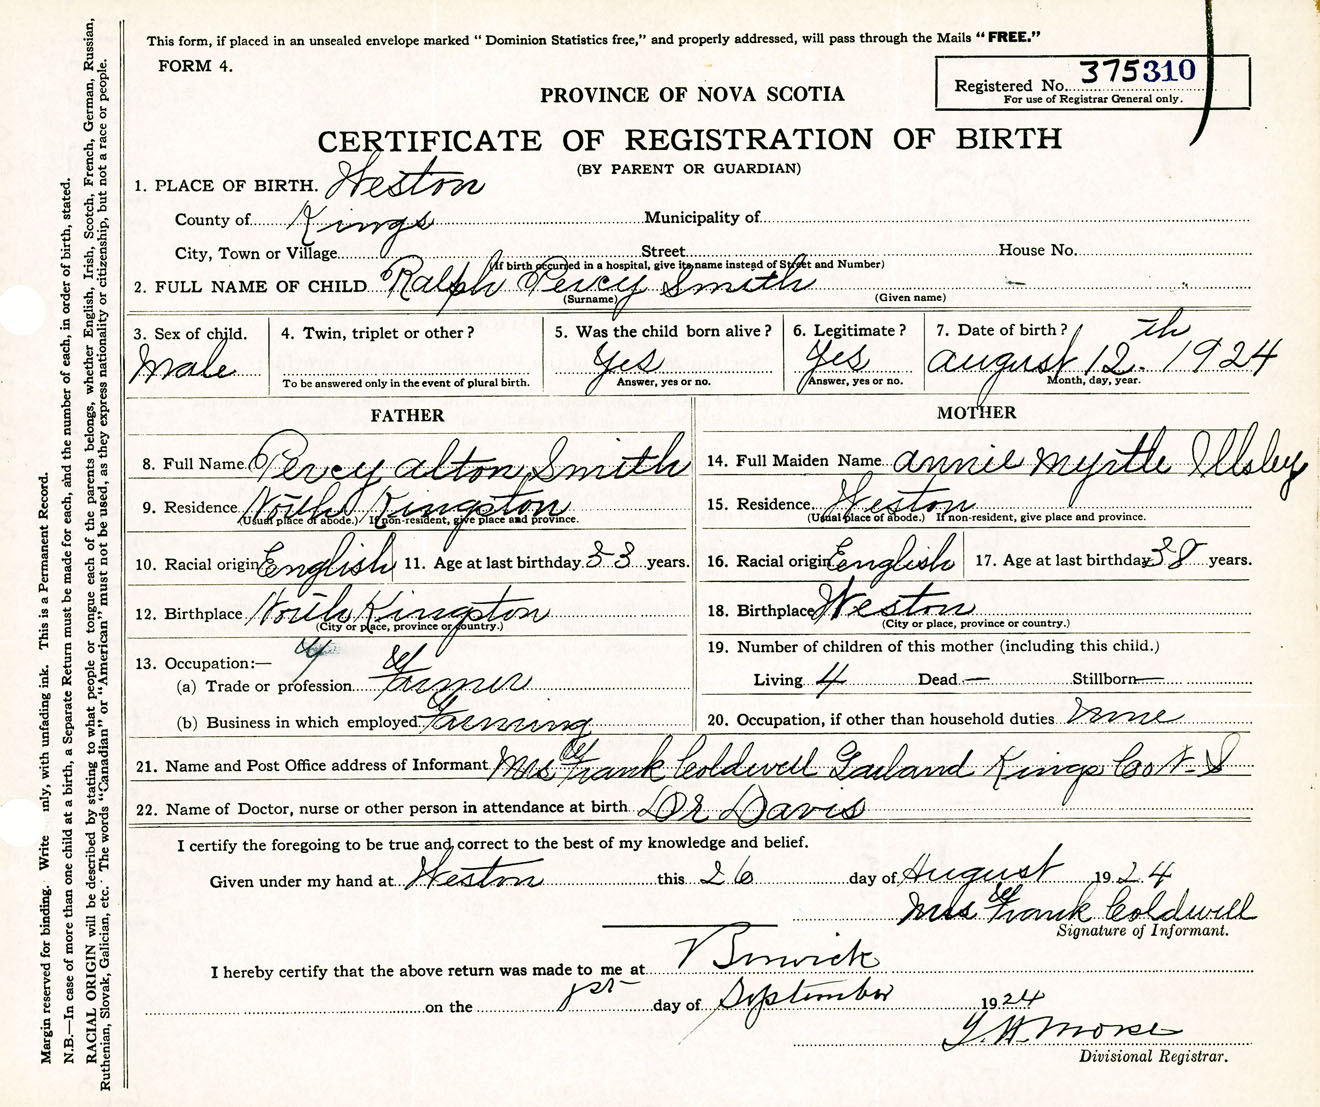 This form, if placed in an unsealed envelope marked "Dominion Statistics free," and properly addressed, will pass through the Mails "FREE."
FORM 4.
Registered No. 375310
For use of Registrar General only.
PROVINCE OF NOVA SCOTIA
CERTIFICATE OF REGISTRATION OF BIRTH
(BY PARENT OR GUARDIAN)
1. PLACE OF BIRTH. Weston
County of Kings Municipality of
City, Town or Village Street House No.
(If birth occurred in a hospital, give its name instead of Street and Number)
2. FULL NAME OF CHILD Ralph Percy Smith
(Surname) (Given name)
3. Sex of child. 4. Twin, triplet or other? 5. Was the child born alive? 6. Legitimate? 7. Date of birth?
Male Yes Yes August 12th 1924
To be answered only in the event of plural birth. Answer, yes or no. Answer, yes or no. Month, day, year.
FATHER MOTHER
8. Full Name Percy Alton Smith 14. Full Maiden Name Annie Myrtle Illsley
9. Residence North Kingston 15. Residence Weston
(Usual place of abode.) If non-resident, give place and province. (Usual place of abode.) If non-resident, give place and province.
10. Racial origin English 11. Age at last birthday 33 years. 16. Racial origin English 17. Age at last birthday 38 years.
12. Birthplace North Kingston 18. Birthplace Weston
(City or place, province or country.) (City or place, province or country.)
13. Occupation:— 19. Number of children of this mother (including this child.)
(a) Trade or profession Farmer Living 4 Dead — Stillborn —
(b) Business in which employed Farming 20. Occupation, if other than household duties None
21. Name and Post Office address of Informant Mrs Frank Coldwell Garland Kings Co N-S
22. Name of Doctor, nurse or other person in attendance at birth Dr Davis
I certify the foregoing to be true and correct to the best of my knowledge and belief.
Given under my hand at Weston this 26 day of August 1924
Mrs Frank Coldwell
Signature of Informant.
I hereby certify that the above return was made to me at Berwick
on the 1st day of September 1924
Morse
Divisional Registrar.
Margin reserved for binding. Write nly, with unfading ink. This is a Permanent Record.
N.B.—In case of more than one child at a birth, a Separate Return must be made for each, and the number of each, in order of birth, stated.
RACIAL ORIGIN will be described by stating to what people or tongue each of the parents belongs, whether English, Irish, Scotch, French, German, Russian,
Ruthenian, Slovak, Galician, etc. The words "Canadian" or "American" must not be used, as they express nationality or citizenship, but not a race or people.